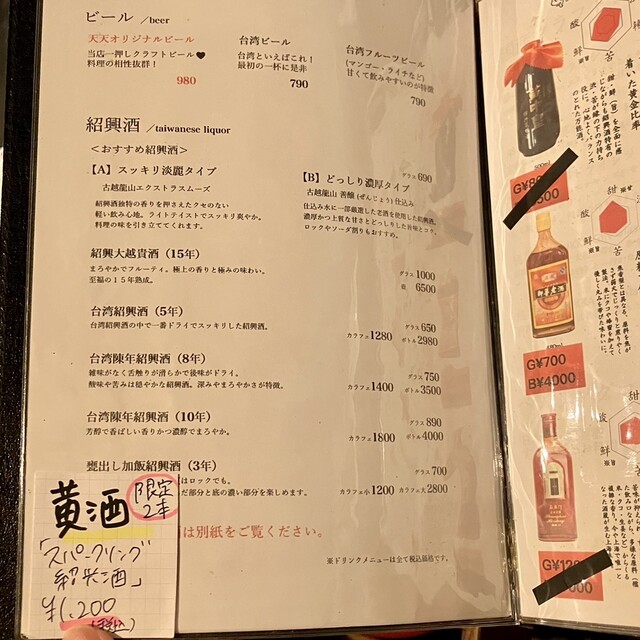 ビール /beer
天天オリジナルビール
当店一押しクラフトビール♥
料理の相性抜群!
980
台湾ビール
台湾といえばこれ!
最初の一杯に是非
790
台湾フルーツビール
(マンゴー・ライチなど)
甘くて飲みやすいのが特徴
790
紹興酒 /taiwanese liquor
<おすすめ紹興酒>
【A】スッキリ淡麗タイプ
古越龍山エクストラスムーズ
紹興酒独特の香りを押さえたクセのない
軽い飲み心地。ライトテイストでスッキリ爽やか。
料理の味を引き立ててくれます。
【B】どっしり濃厚タイプ
グラス 690
古越龍山 善醸(ぜんじょう)仕込み
仕込み水に一部厳選した老酒を使用した紹興酒。
濃厚かつ上質な甘さとどっしりした旨味とコク。
ロックやソーダ割りもおすすめ。
紹興大越貴酒(15年)
まろやかでフルーティ。極上の香りと極みの味わい。
至福の15年熟成。
グラス 1000
6500
台湾紹興酒(5年)
台湾紹興酒の中で一番ドライでスッキリした紹興酒。
グラス 650
カラフェ1280 ボトル 2980
台湾陳年紹興酒(8年)
雑味がなく舌触りが滑らかで後味がドライ。
酸味や苦みは穏やかな紹興酒。深みやまろやかさが特徴。
グラス 750
カラフェ 1400 ボトル 3500
台湾陳年紹興酒(10年)
芳醇で香ばしい香りかつ濃醇でまろやか。
グラス 890
カラフェ1800 ボトル 4000
甕出し加飯紹興酒(3年)
はロックでも。
だ部分と底の濃い部分を楽しめます。
グラス 700
カラフェ小 1200 カラフェ大 2800
は別紙をご覧ください。
※ドリンクメニューは全て税込価格です。
黄酒
限定
2本
「スパークリング
紹興酒」
¥1,200
(税込)
酸
鮮
苦
着いた黄金比率
甘
酸
鮮
苦
G¥700
B¥4000
甜
酸
鮮
苦